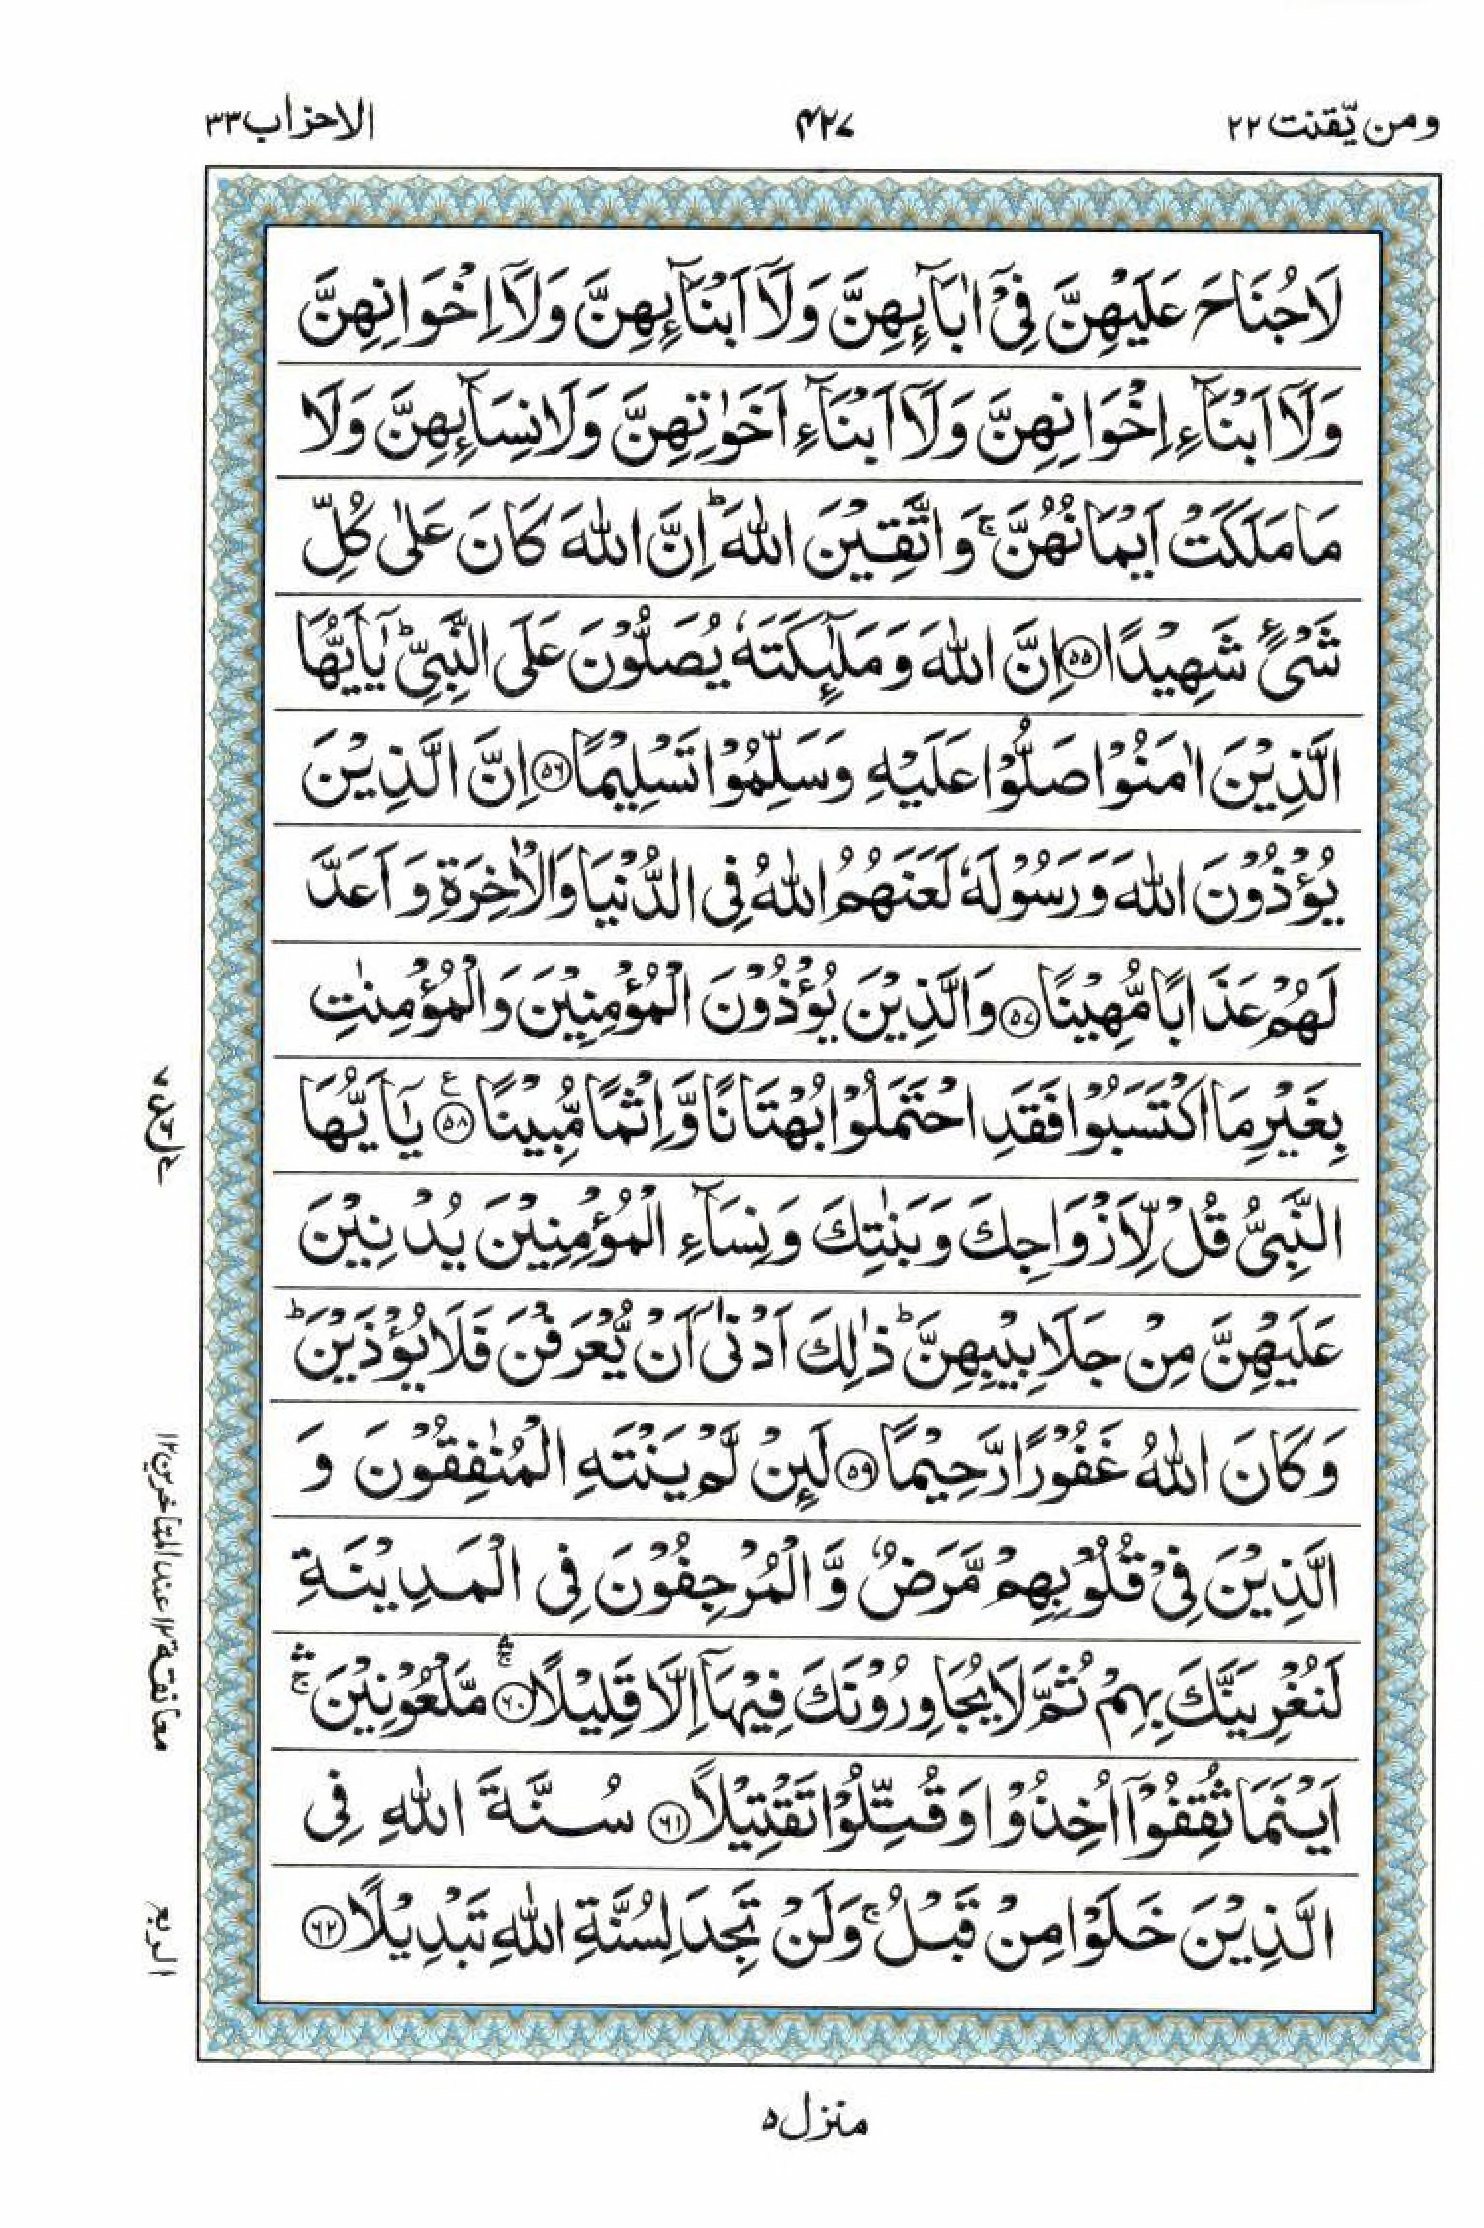 ومن يّقنت ٢٢
٤٢٧
الاحزاب ٣٣
لَا جُنَاحَ عَلَيْهِنَّ فِيْۤ اٰبَآئِهِنَّ وَلَاۤ اَبْنَآئِهِنَّ وَلَاۤ اِخْوَانِهِنَّ
وَلَاۤ اَبْنَآءِ اِخْوَانِهِنَّ وَلَاۤ اَبْنَآءِ اَخَوٰتِهِنَّ وَلَا نِسَآئِهِنَّ وَلَا
مَا مَلَكَتْ اَيْمَانُهُنَّ ۚ وَاتَّقِيْنَ اللّٰهَ ؕ اِنَّ اللّٰهَ كَانَ عَلٰى كُلِّ
شَيْءٍ شَهِيْدًا ﴿٥٥﴾ اِنَّ اللّٰهَ وَمَلٰٓئِكَتَهٗ يُصَلُّوْنَ عَلَى النَّبِيِّ ؕ يٰۤاَيُّهَا
الَّذِيْنَ اٰمَنُوْا صَلُّوْا عَلَيْهِ وَسَلِّمُوْا تَسْلِيْمًا ﴿٥٦﴾ اِنَّ الَّذِيْنَ
يُؤْذُوْنَ اللّٰهَ وَرَسُوْلَهٗ لَعَنَهُمُ اللّٰهُ فِي الدُّنْيَا وَالْاٰخِرَةِ وَاَعَدَّ
لَهُمْ عَذَابًا مُّهِيْنًا ﴿٥٧﴾ وَالَّذِيْنَ يُؤْذُوْنَ الْمُؤْمِنِيْنَ وَالْمُؤْمِنٰتِ
بِغَيْرِ مَا اكْتَسَبُوْا فَقَدِ احْتَمَلُوْا بُهْتَانًا وَّاِثْمًا مُّبِيْنًا ﴿٥٨﴾ ع يٰۤاَيُّهَا
النَّبِيُّ قُلْ لِّاَزْوَاجِكَ وَبَنٰتِكَ وَنِسَآءِ الْمُؤْمِنِيْنَ يُدْنِيْنَ
عَلَيْهِنَّ مِنْ جَلَابِيْبِهِنَّ ؕ ذٰلِكَ اَدْنٰۤى اَنْ يُّعْرَفْنَ فَلَا يُؤْذَيْنَ ؕ
وَكَانَ اللّٰهُ غَفُوْرًا رَّحِيْمًا ﴿٥٩﴾ لَئِنْ لَّمْ يَنْتَهِ الْمُنٰفِقُوْنَ وَ
الَّذِيْنَ فِيْ قُلُوْبِهِمْ مَّرَضٌ وَّالْمُرْجِفُوْنَ فِي الْمَدِيْنَةِ
لَنُغْرِيَنَّكَ بِهِمْ ثُمَّ لَا يُجَاوِرُوْنَكَ فِيْهَاۤ اِلَّا قَلِيْلًا ﴿٦٠﴾ ۛۚ مَّلْعُوْنِيْنَ ۛۚ
اَيْنَمَا ثُقِفُوْۤا اُخِذُوْا وَقُتِّلُوْا تَقْتِيْلًا ﴿٦١﴾ سُنَّةَ اللّٰهِ فِي
الَّذِيْنَ خَلَوْا مِنْ قَبْلُ ۚ وَلَنْ تَجِدَ لِسُنَّةِ اللّٰهِ تَبْدِيْلًا ﴿٦٢﴾
معانقة ١٢ عند المتأخرين ١٢
الربع
منزل ٥